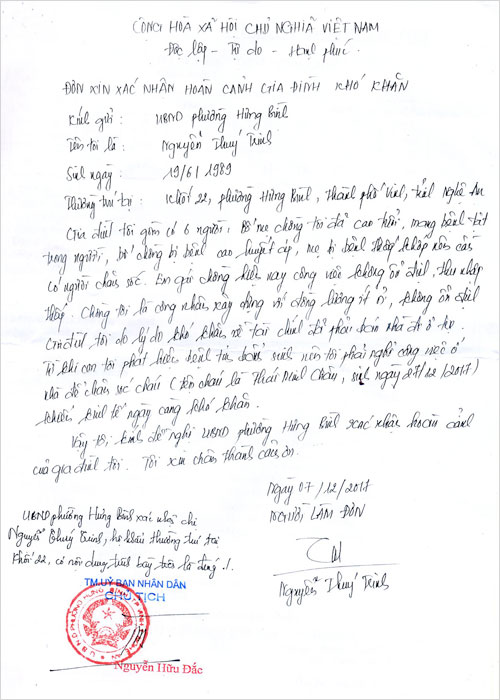 CỘNG HÒA XÃ HỘI CHỦ NGHĨA VIỆT NAM
Độc lập - Tự do - Hạnh phúc
ĐƠN XIN XÁC NHẬN HOÀN CẢNH GIA ĐÌNH KHÓ KHĂN
Kính gửi : UBND phường Hưng Bình
Tên tôi là : Nguyễn Thuý Trinh
Sinh ngày : 19/6/1989
Thường trú tại : Khối 22, phường Hưng Bình, Thành phố Vinh, tỉnh Nghệ An
Gia đình tôi gồm có 6 người, Bố mẹ chồng tôi đã cao tuổi, mang bệnh tật
trong người, bố chồng bị bệnh cao huyết áp, mẹ bị bệnh thấp khớp nên cần
có người chăm sóc. Em gái chồng hiện nay công việc không ổn định, thu nhập
thấp. Chồng tôi là công nhân xây dựng với đồng lương ít ỏi, không ổn định
Gia đình tôi do lý do khó khăn về tài chính đã phải bán nhà đi ở trọ.
Từ khi con tôi phát hiện bệnh tim bẩm sinh nên tôi phải nghỉ công việc ở
nhà để chăm sóc cháu (tên cháu là Thái Minh Châu, sinh ngày 27/12/2017)
khiến kinh tế ngày càng khó khăn.
Vậy tôi kính đề nghị UBND phường Hưng Bình xác nhận hoàn cảnh
của gia đình tôi. Tôi xin chân thành cảm ơn.
Ngày 07/12/2017
NGƯỜI LÀM ĐƠN
Nguyễn Thuý Trinh
UBND phường Hưng Bình xác nhận chị
Nguyễn Thuý Trinh, hộ khẩu thường trú tại
Khối 22, có nội dung trình bày trên là đúng./.
TM. UỶ BAN NHÂN DÂN
CHỦ TỊCH
Nguyễn Hữu Đắc